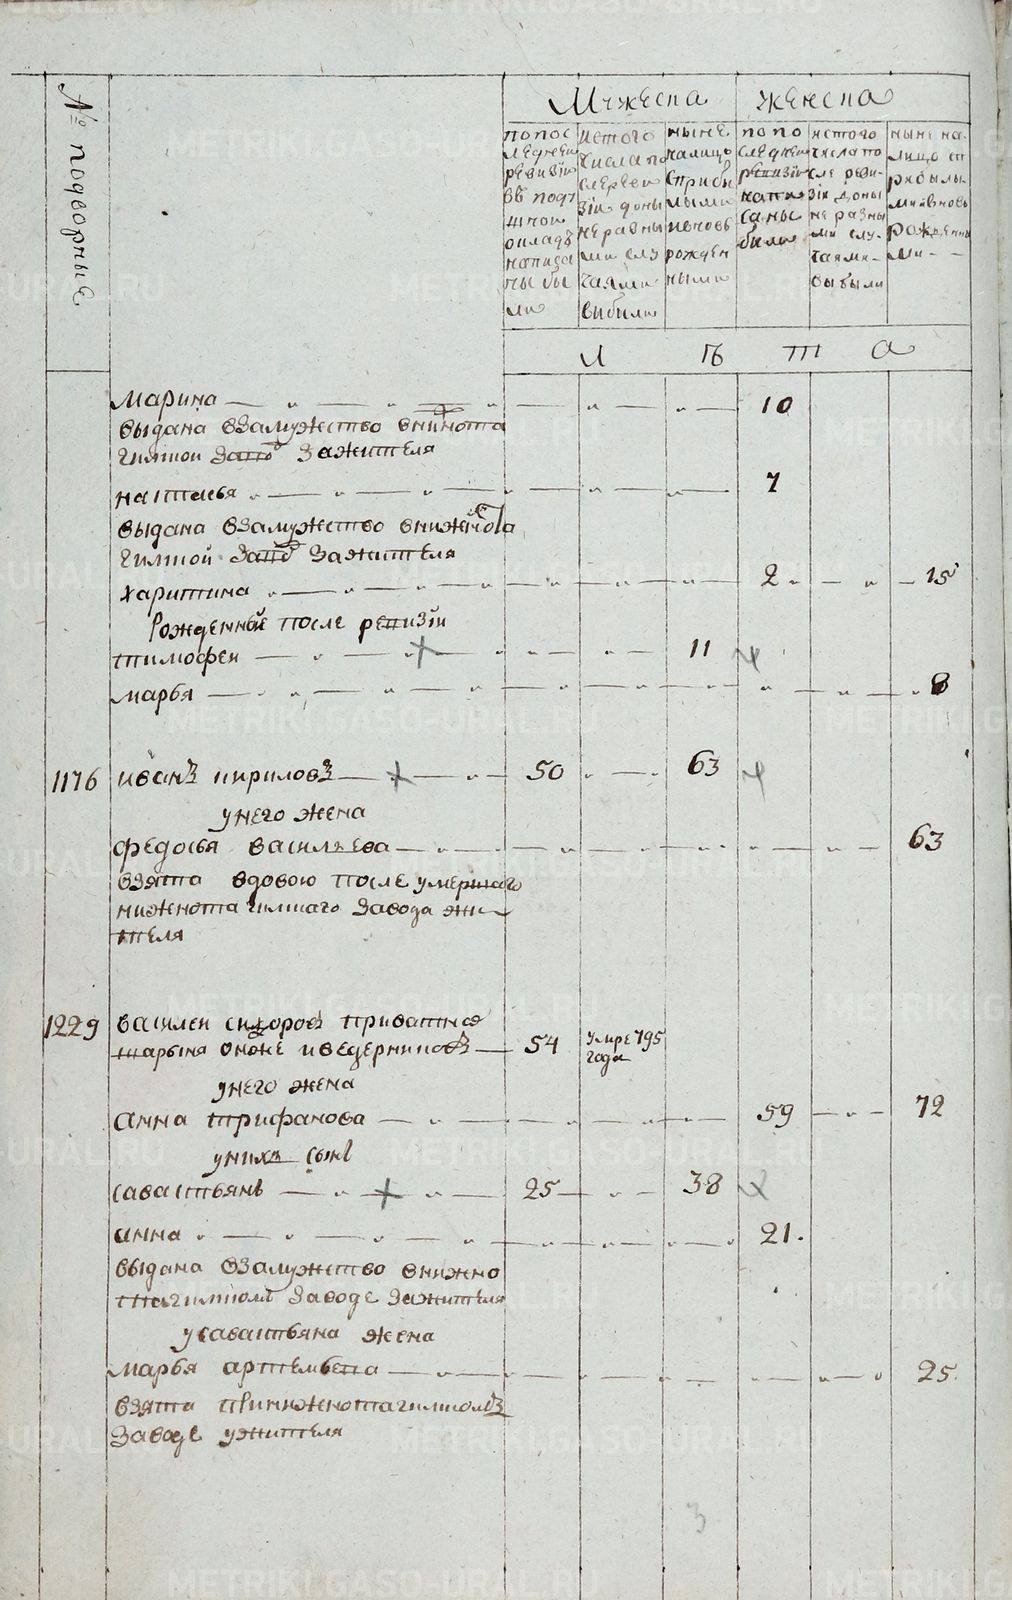 № подворные
Мужеска
женска
по пос
ледней
ревизiи
въ поду
шной
окладъ
написа
ны бы
ли
истого
числа по
сле реви
зiи доны
не разны
ми слу
чаями
выбыли
ныне
налицо
сприбы
лыми
ивновь
рожден
ными
по по
следней
ревизiи
напи
саны
были
истого
числа по
сле реви
зiи доны
не разны
ми слу
чаями
выбыли
ныне на
лицо сп
рибылы
ми ивновь
рожденны
ми
Л Ѣ т а
марина 10
выдана взамужество внижнота
гилской завод зажителя
настасья 7
выдана взамужество внижнета
гилской завод зажителя
харитина 2 15
Рожденные после ревизiи
тимофеи 11
марья 8
1176 иванъ кириловъ 50 63
унего жена
федосья васильева 63
взята вдовою после умершаго
нижнотагилскаго завода жи
теля
1229 василеи сидоровъ
онже иведерниковъ 54 умре 795
года
унего жена
анна трифанова 59 72
унихъ сынъ
савастьянъ 25 38
анна 21.
выдана взамужество внижно
тагилскомъ заводе зажителя
усавастьяна жена
марья артемьева 25.
взята принижнотагилскомъ
заводе ужителя
3